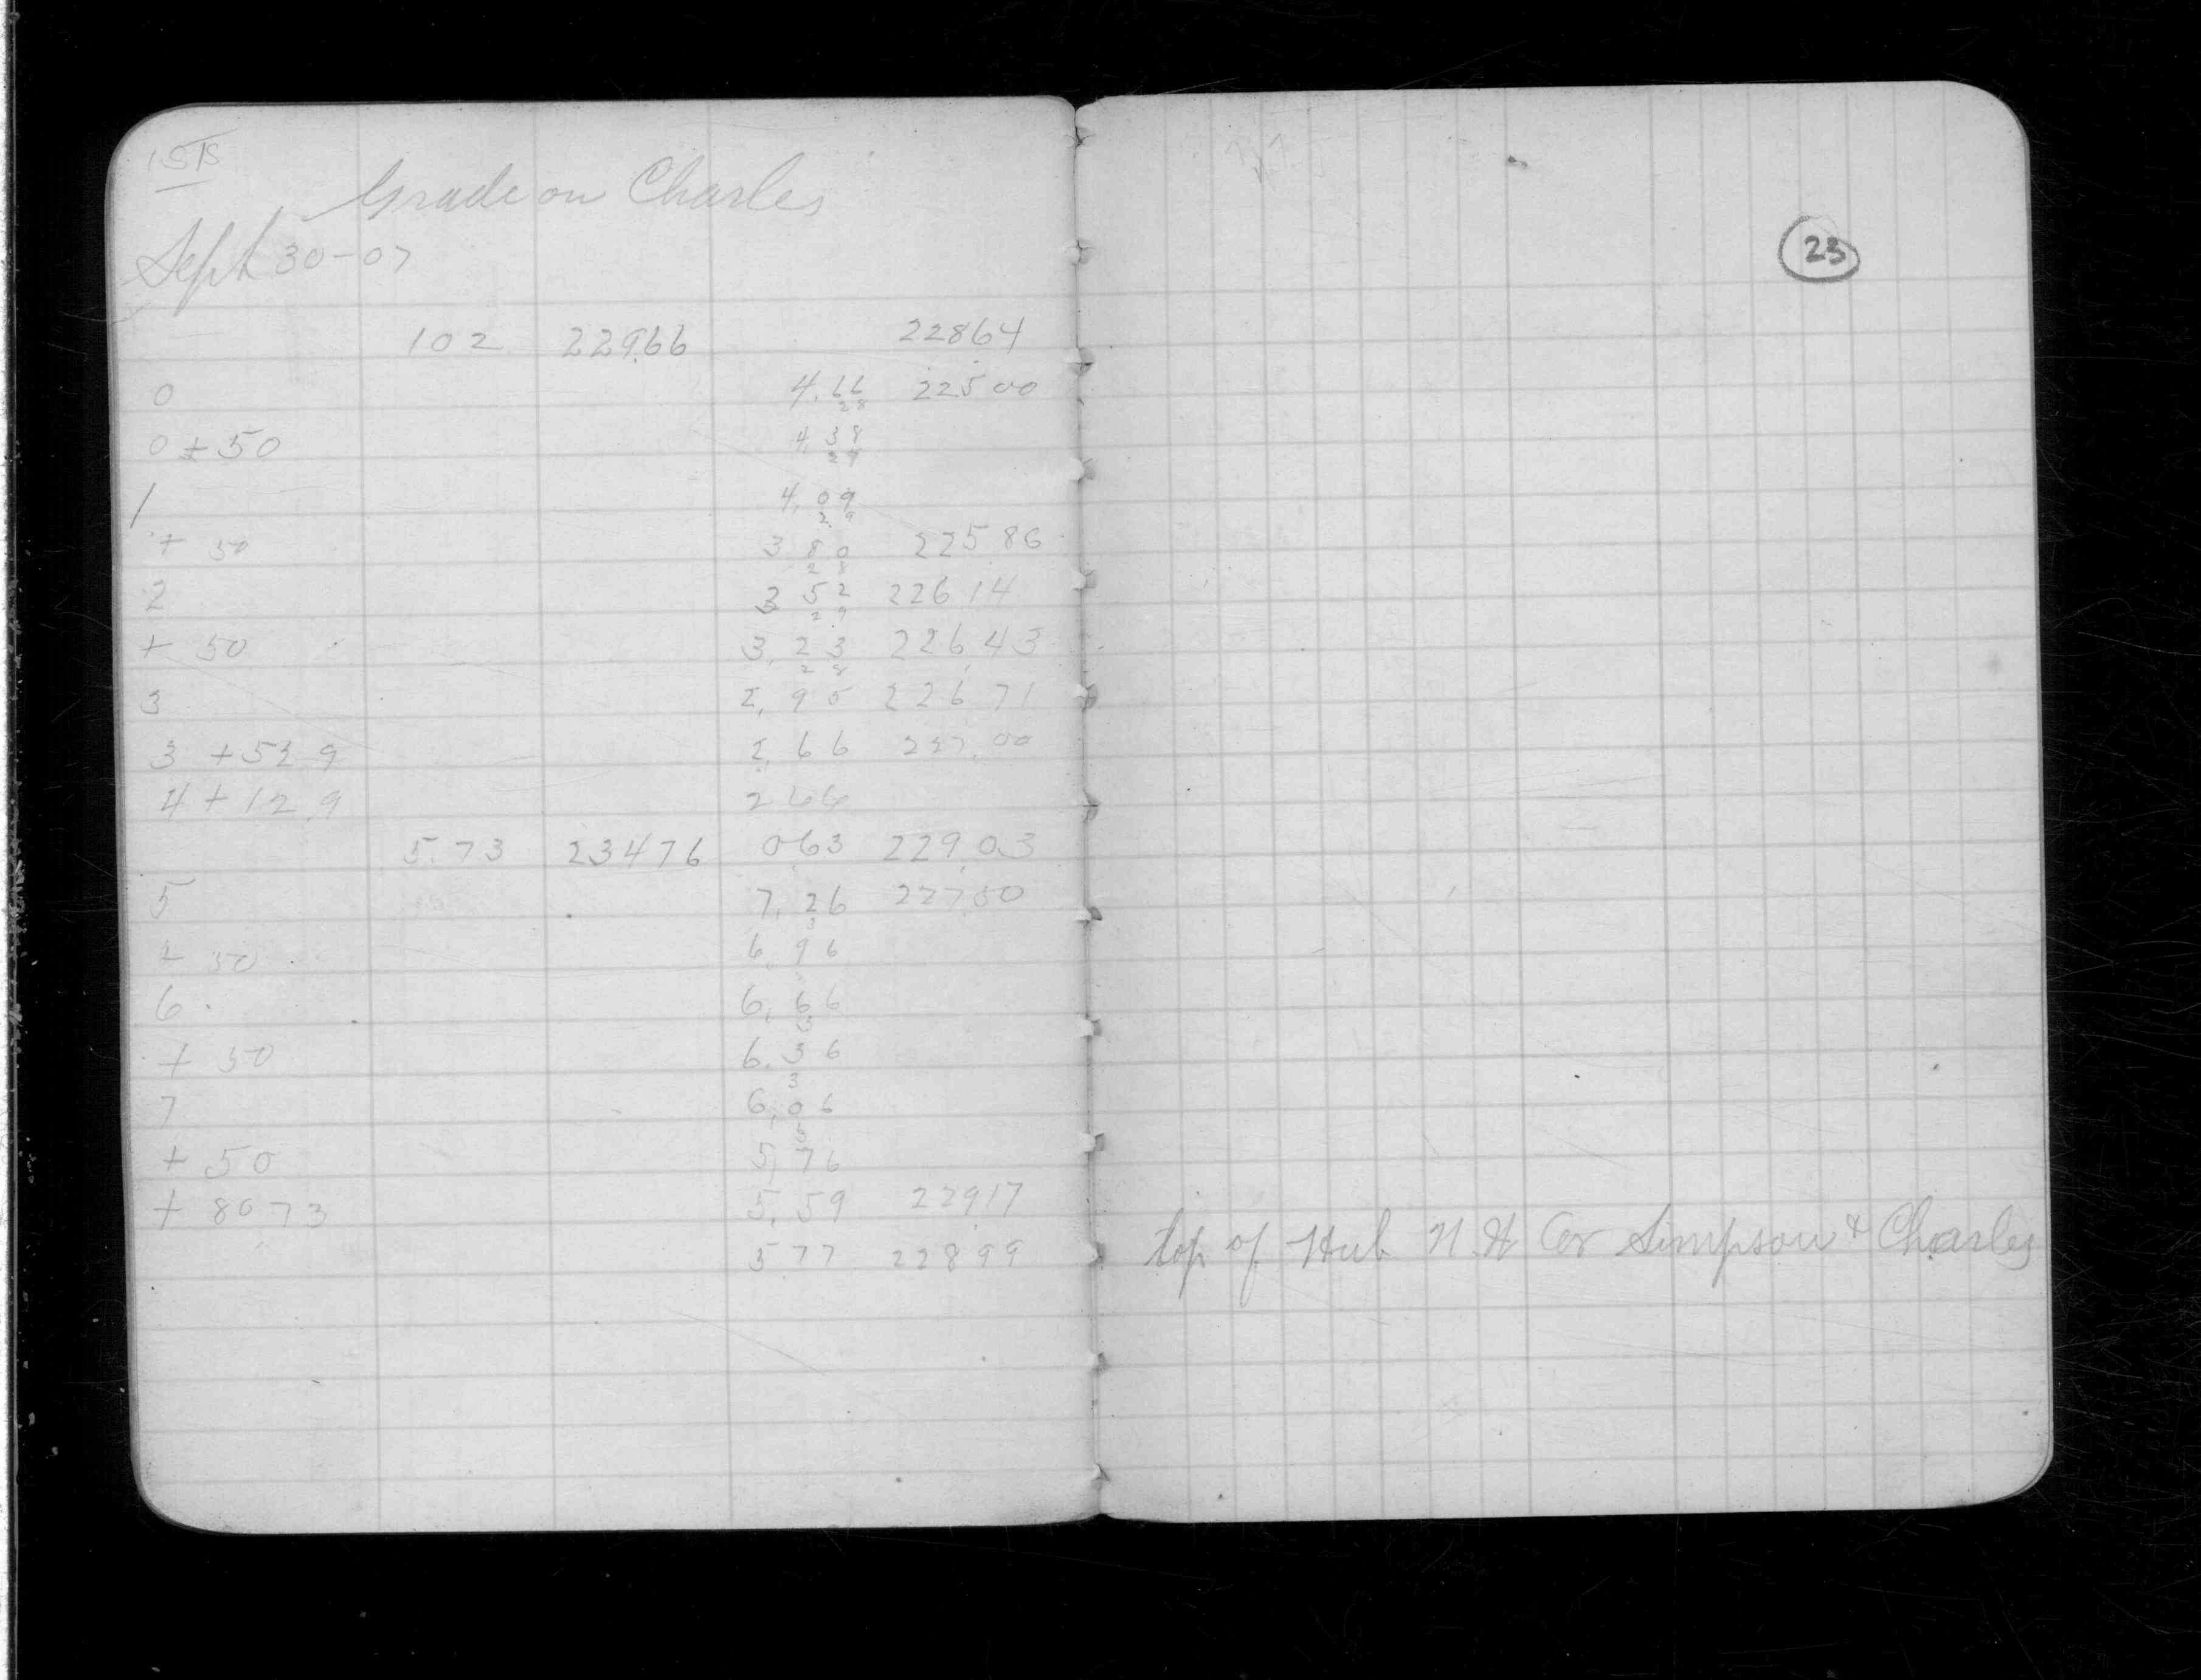 Grade on Charles
Sept 30-07
102 229.66 22864
0 4.66 225 00
28
0 + 50 4 38
29
1 4.09
29
+ 50 3 80 225 86
28
2 3 52 226 14
29
+ 50 3.23 226.43
28
3 2.95 226 71
3 + 52 9 2.66 227.00
4 + 12.9 2 66
5.73 234 76 0.63 229.03
5 7.26 227.50
3
+ 50 6.96
6 6.66
3
+ 50 6.36
3
7 6.06
3
+ 50 5.76
+ 80 73 5.59 229.17
5.77 228.99
23
top of Hub N.W Cor Simpson & Charles